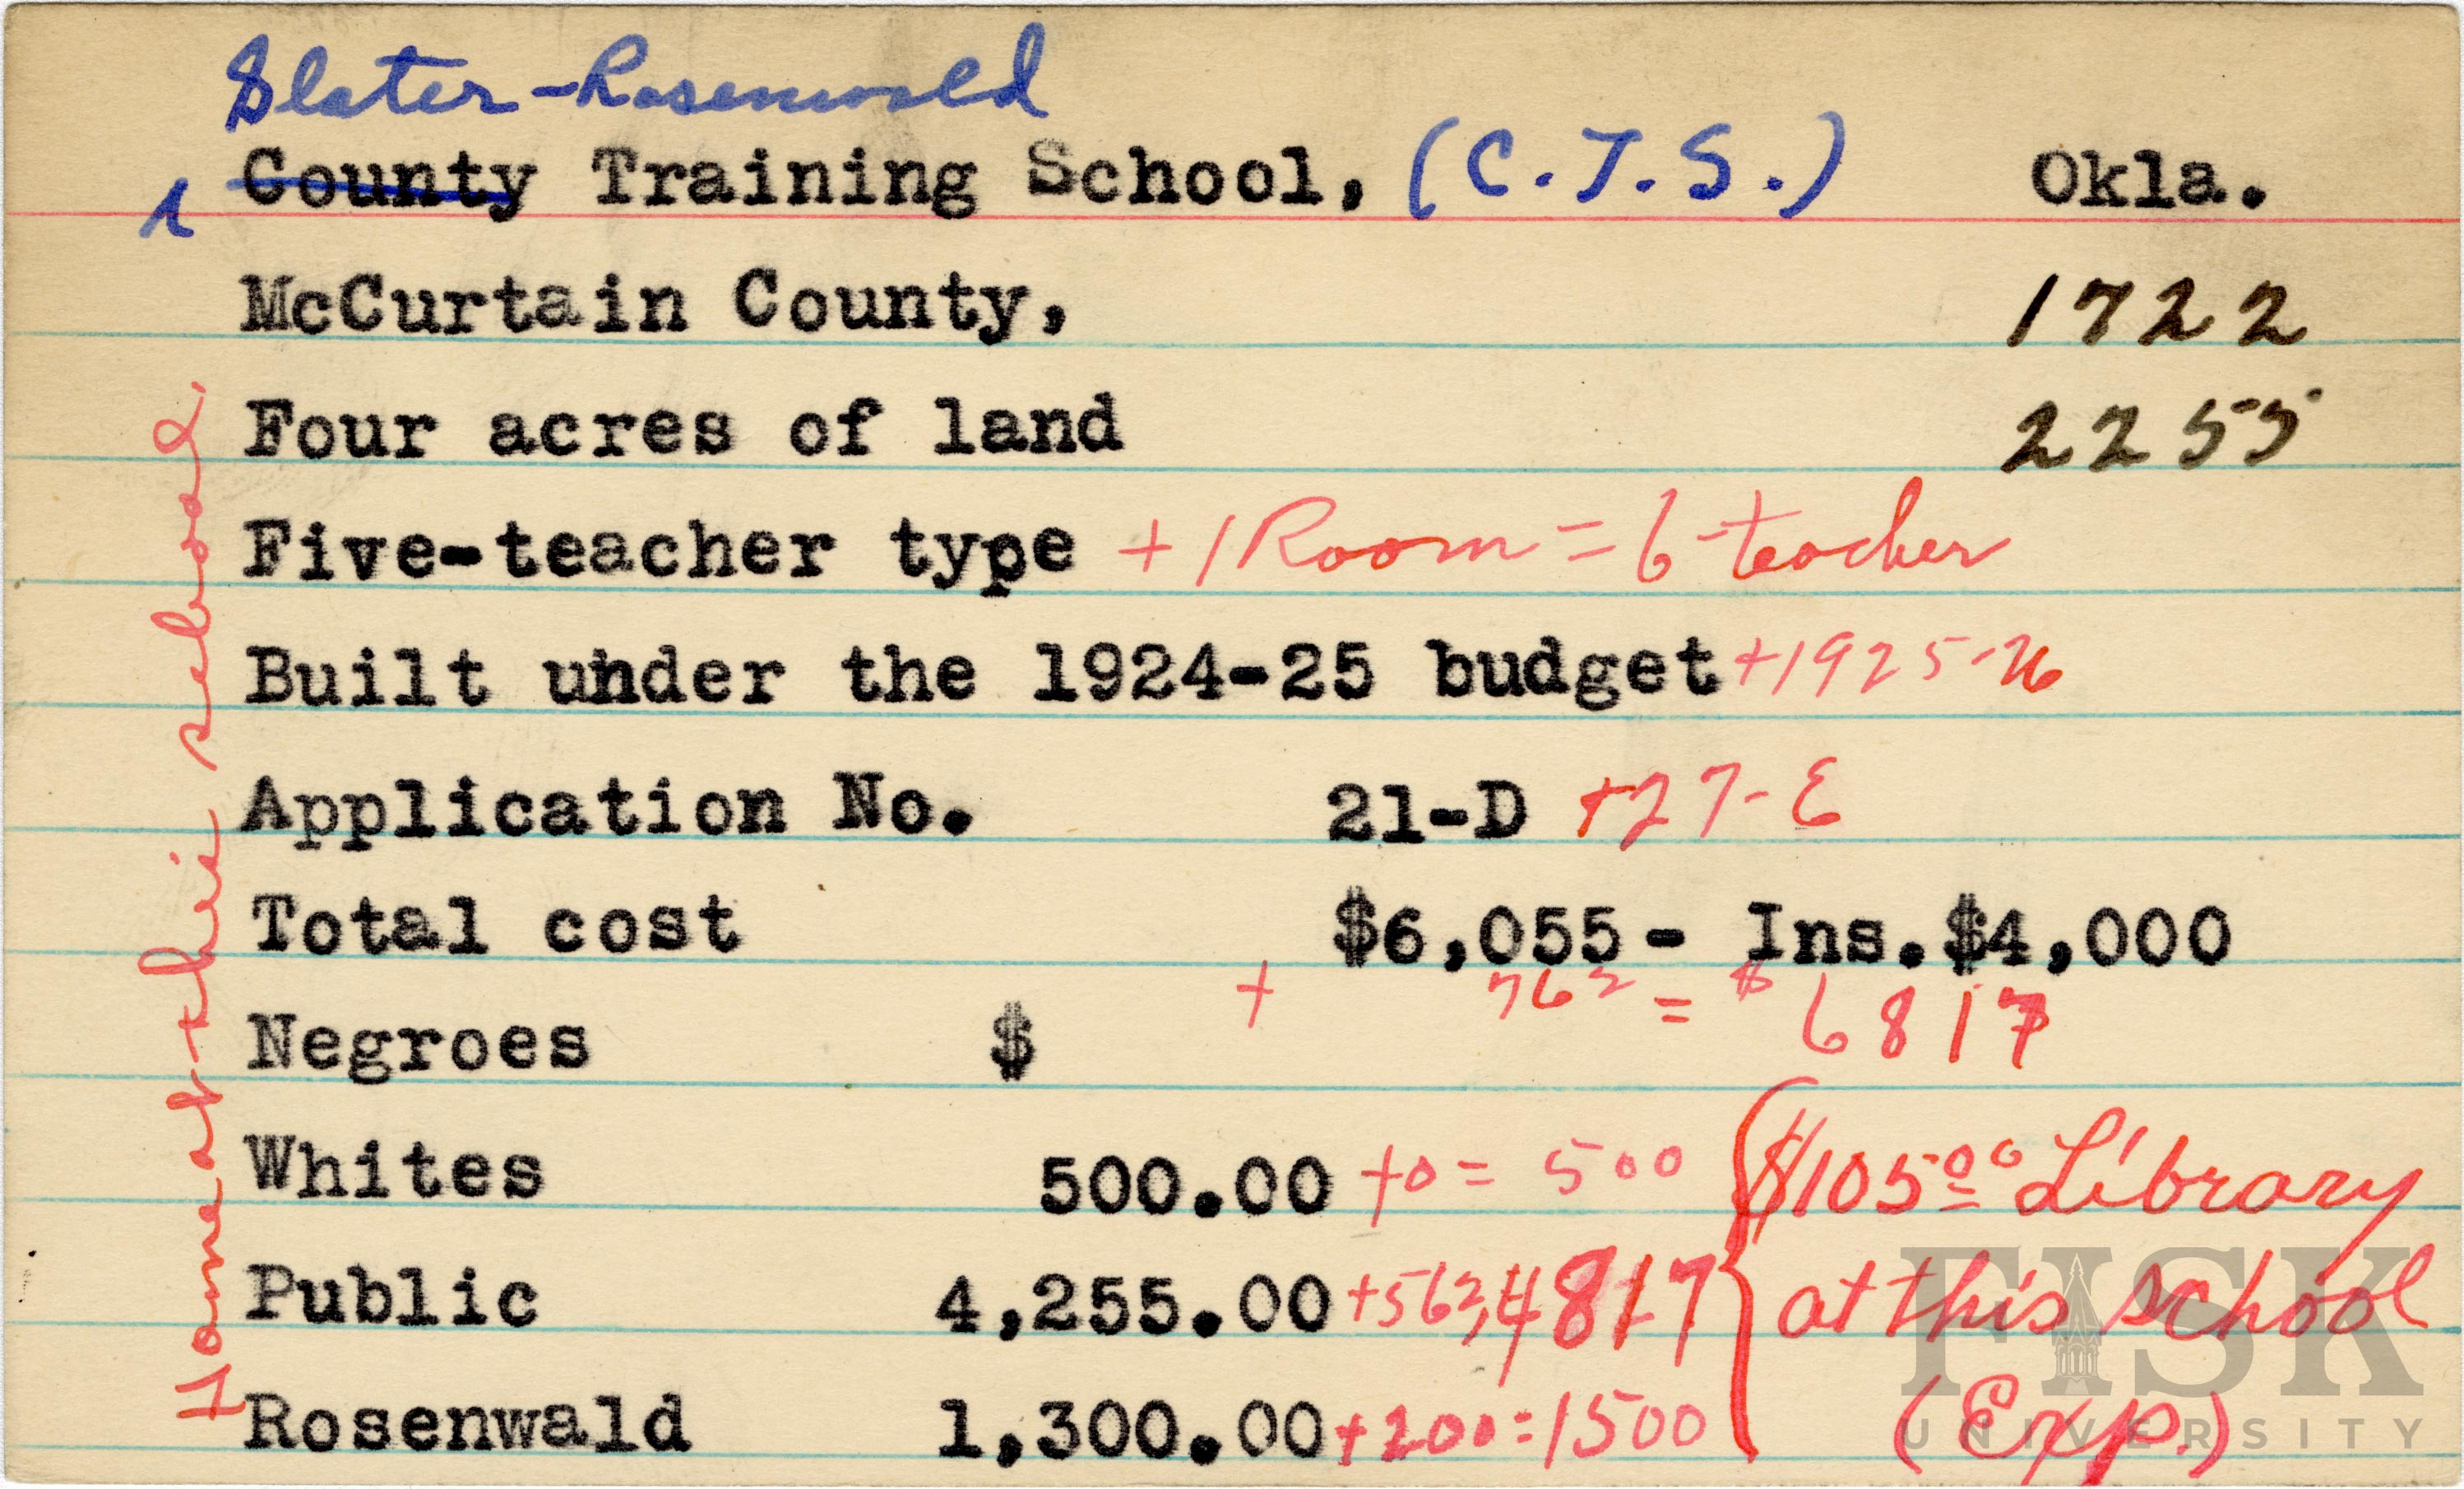 Slater-Rosenwald
County Training School, (C.T.S.) Okla.
McCurtain County, 1722
Four acres of land 2255
Five-teacher type +1 Room = 6-teacher
Built under the 1924-25 budget +1925-26
Application No. 21-D +27-E
Total cost $6,055- Ins.$4,000
+ 762 = $6817
Negroes $
Whites 500.00 +0 = 500
Public 4,255.00 +562, 4817
Rosenwald 1,300.00 +200=1500
$105.00 Library
at this school
(Exp.)
Home at this school
FISK
UNIVERSITY